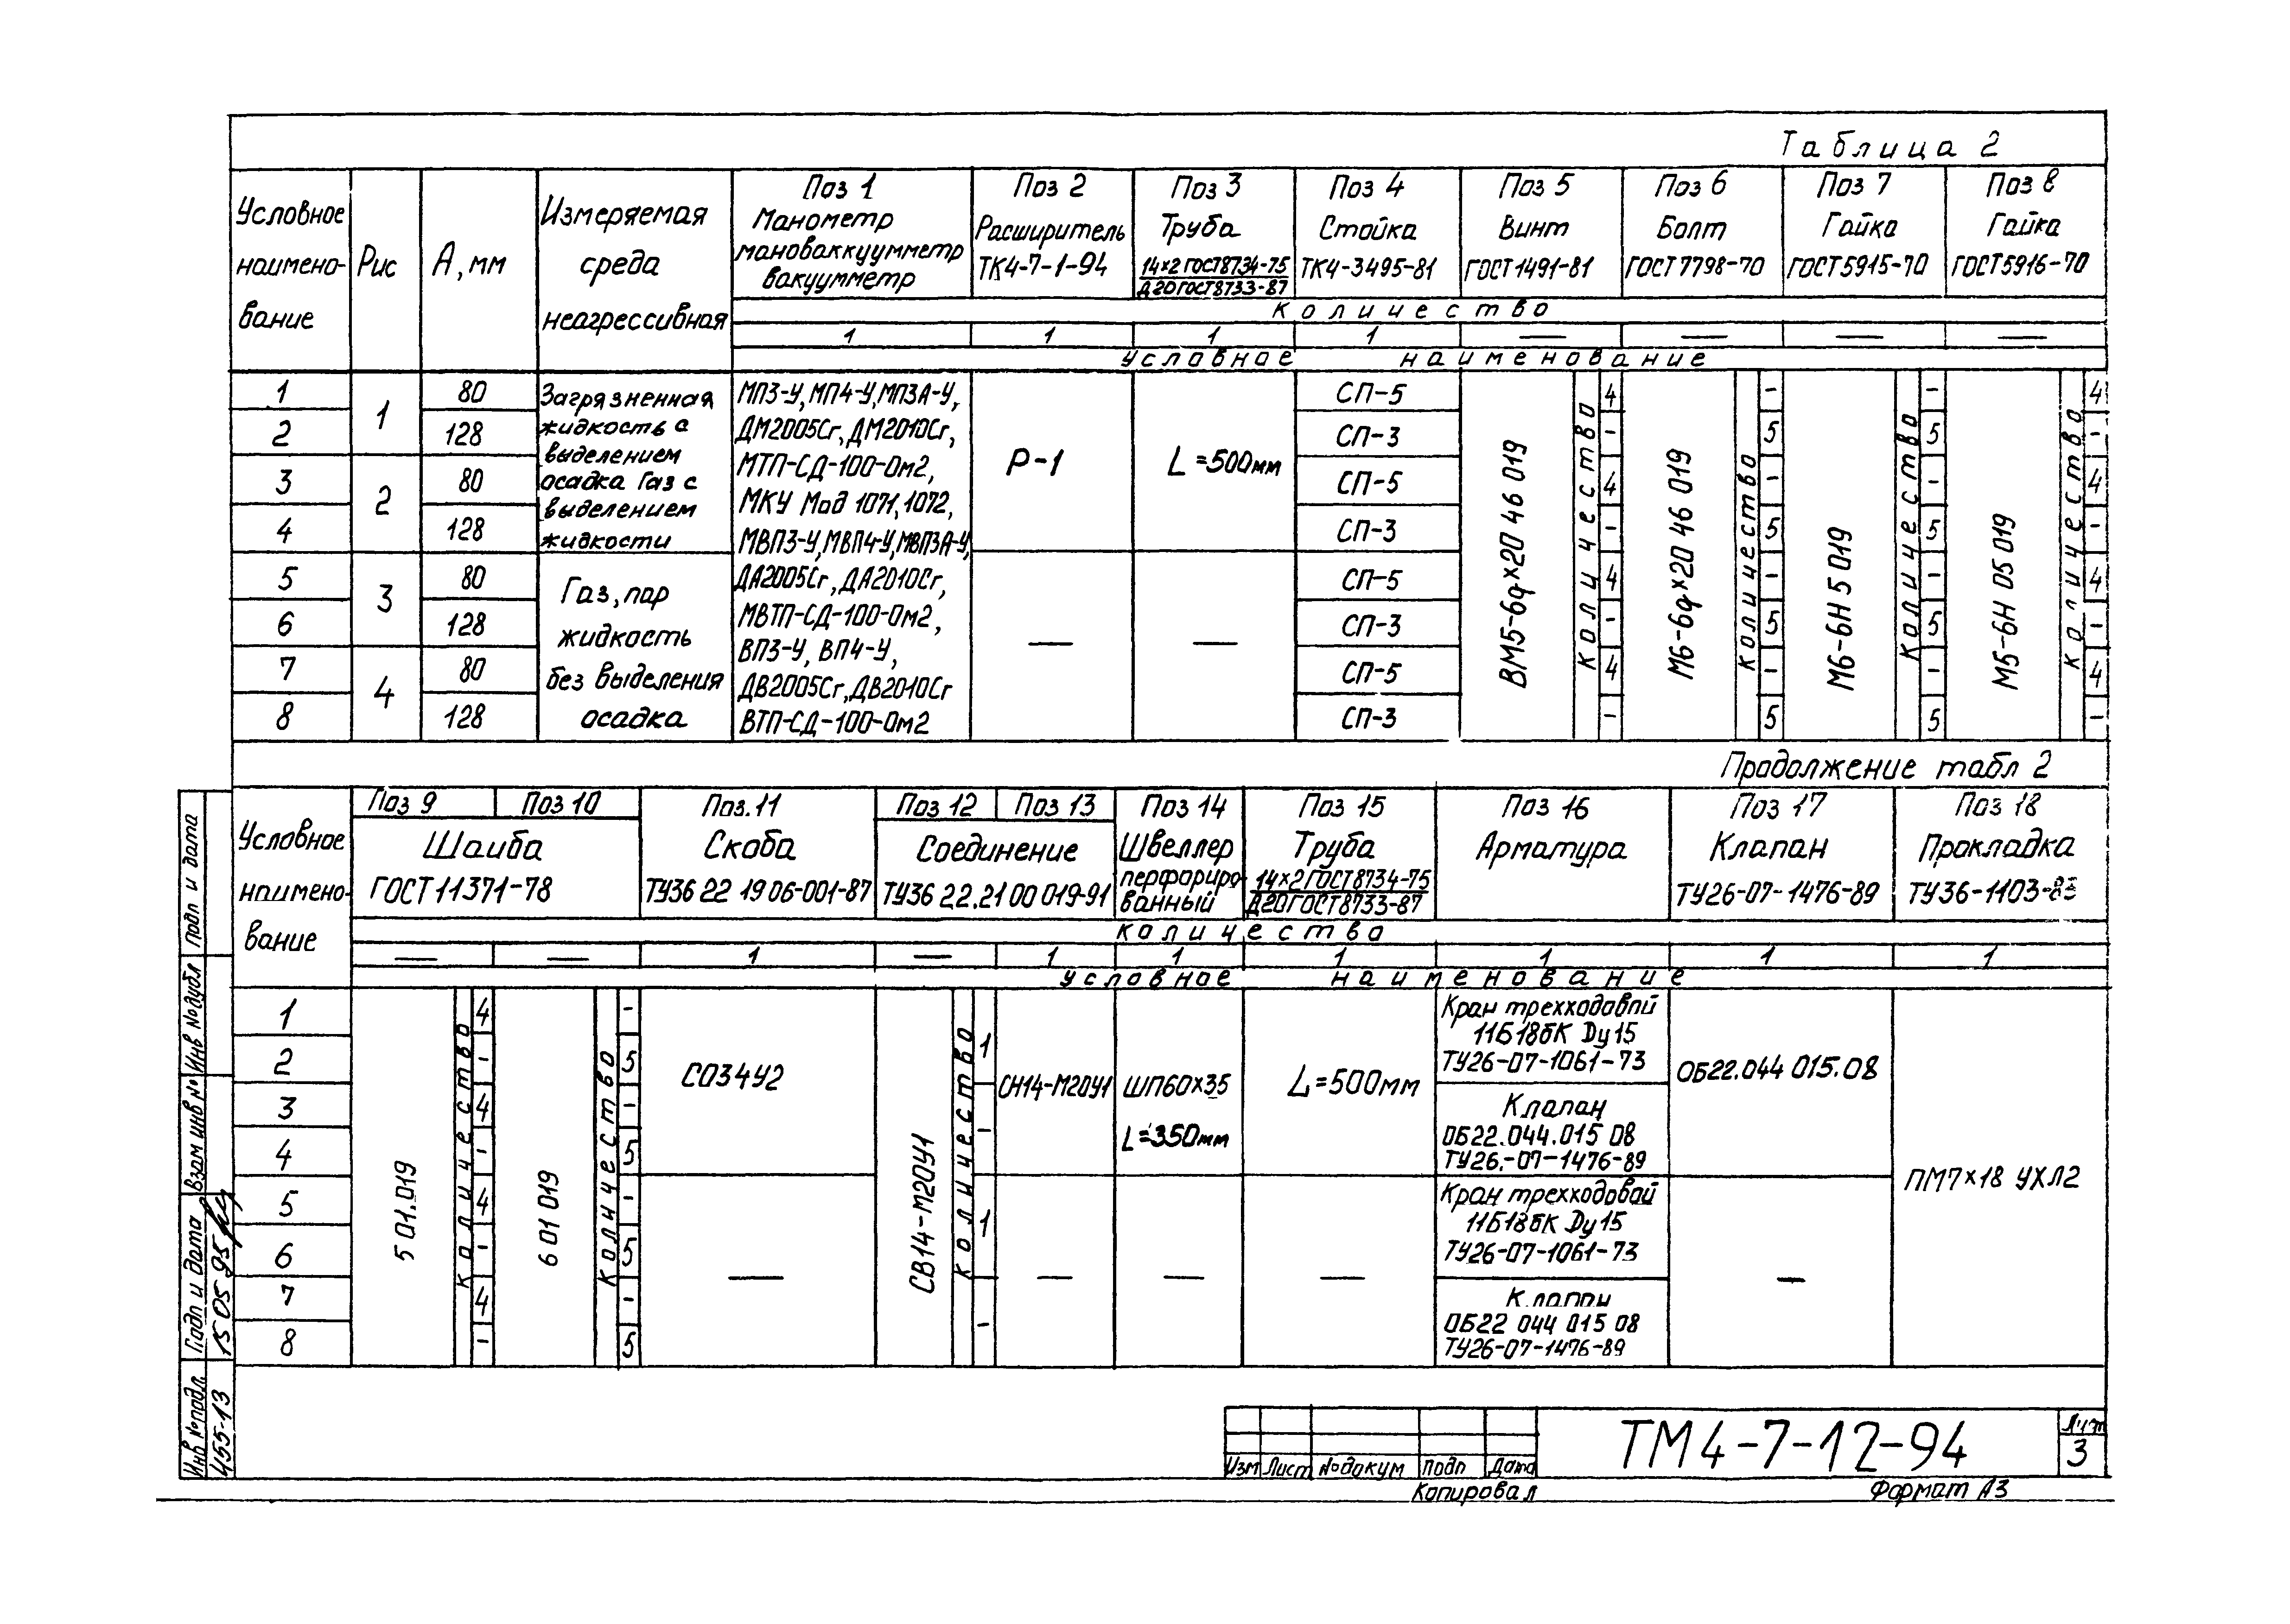 Таблица 2
Условное наимено- вание
Рис
А, мм
Измеряемая среда неагрессивная
Поз 1 Манометр мановаккуумметр вакуумметр
Поз 2 Расширитель ТК4-7-1-94
Поз 3 Труба 14×2 ГОСТ8734-75 Д20ГОСТ8733-87
Поз 4 Стойка ТК4-3495-81
Поз 5 Винт ГОСТ1491-81
Поз 6 Болт ГОСТ7798-70
Поз 7 Гайка ГОСТ5915-70
Поз 8 Гайка ГОСТ5916-70
количество
1 1 1 1 — — — —
условное наименование
1 2 3 4 5 6 7 8
1 2 3 4
80 128 80 128 80 128 80 128
Загрязненная
жидкость с
выделением
осадка Газ с
выделением
жидкости
Газ, пар
жидкость
без выделения
осадка
МП3-У, МП4-У, МП3А-У,
ДМ2005Сг, ДМ2010Сг,
МТП-СД-100-Ом2,
МКУ Мод 1071, 1072,
МВП3-У, МВП4-У, МВП3А-У,
ДА2005Сг, ДА2010Сг,
МВТП-СД-100-Ом2,
ВП3-У, ВП4-У,
ДВ2005Сг, ДВ2010Сг
ВТП-СД-100-Ом2
Р-1 —
L=500мм —
СП-5 СП-3 СП-5 СП-3 СП-5 СП-3 СП-5 СП-3
ВМ5-6g×20 46 019
количество
4 - 4 - 4 - 4 -
М6-6g×20 46 019
количество
- 5 - 5 - 5 - 5
М6-6Н 5 019
количество
- 5 - 5 - 5 - 5
М5-6Н 05 019
количество
4 - 4 - 4 - 4 -
Продолжение табл 2
Условное наимено- вание
Поз 9 Поз 10
Шайба
ГОСТ 11371-78
Поз.11 Скоба ТУ36 22 19 06-001-87
Поз 12 Поз 13
Соединение
ТУ36 22.21 00 019-91
Поз 14 Швеллер перфориро- ванный
Поз 15 Труба 14×2 ГОСТ8734-75 Д20ГОСТ8733-87
Поз 16 Арматура
Поз 17 Клапан ТУ26-07-1476-89
Поз 18 Прокладка ТУ36-1103-83
количество
— — 1 — 1 1 1 1 1 1
условное наименование
1 2 3 4 5 6 7 8
5 01.019
количество
4 - 4 - 4 - 4 -
6 01 019
количество
- 5 - 5 - 5 - 5
СО34У2 —
СВ14-М20У1
количество
1 - 1 -
СН14-М20У1 —
ШП60×35
L=350мм
—
L=500мм —
Кран трехходовой
11Б18бК Ду15
ТУ26-07-1061-73
Клапан
ОБ22.044.015 08
ТУ26.-07-1476-89
Кран трехходовой
11Б18бК Ду15
ТУ26-07-1061-73
Клапан
ОБ22 044 015 08
ТУ26-07-1476-89
ОБ22.044 015.08 —
ПМ7×18 УХЛ2
Подп и дата
Инв №дубл
Взам инв №
Подп и дата
15 05 95
Инв №подл.
455-13
Изм Лист №докум Подп Дата
ТМ4-7-12-94
Лист
3
Копировал
Формат А3